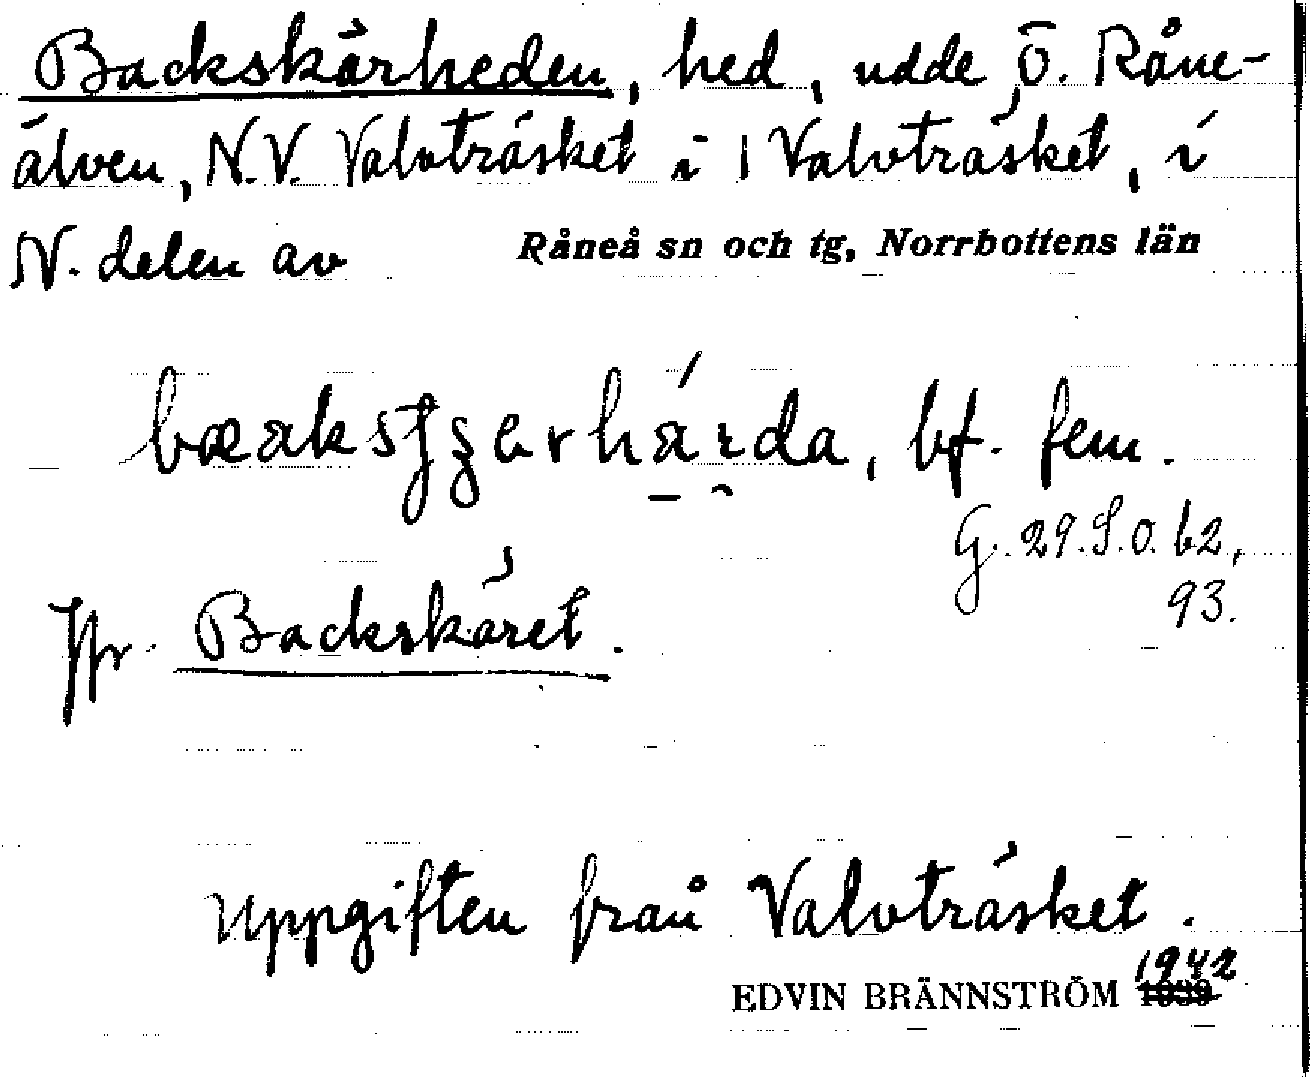 Backskärheden, hed, udde Ö. Råne-
älven, N.V. Valvträsket i l Valvträsket, i
N. delen av Råneå sn och tg, Norrbottens län
bf. fem.
G. 29. S.o. 62,
93.
Jfr. Backskäret.
Uppgiften från Valvträsket.
1942
EDVIN BRÄNNSTRÖM 1939